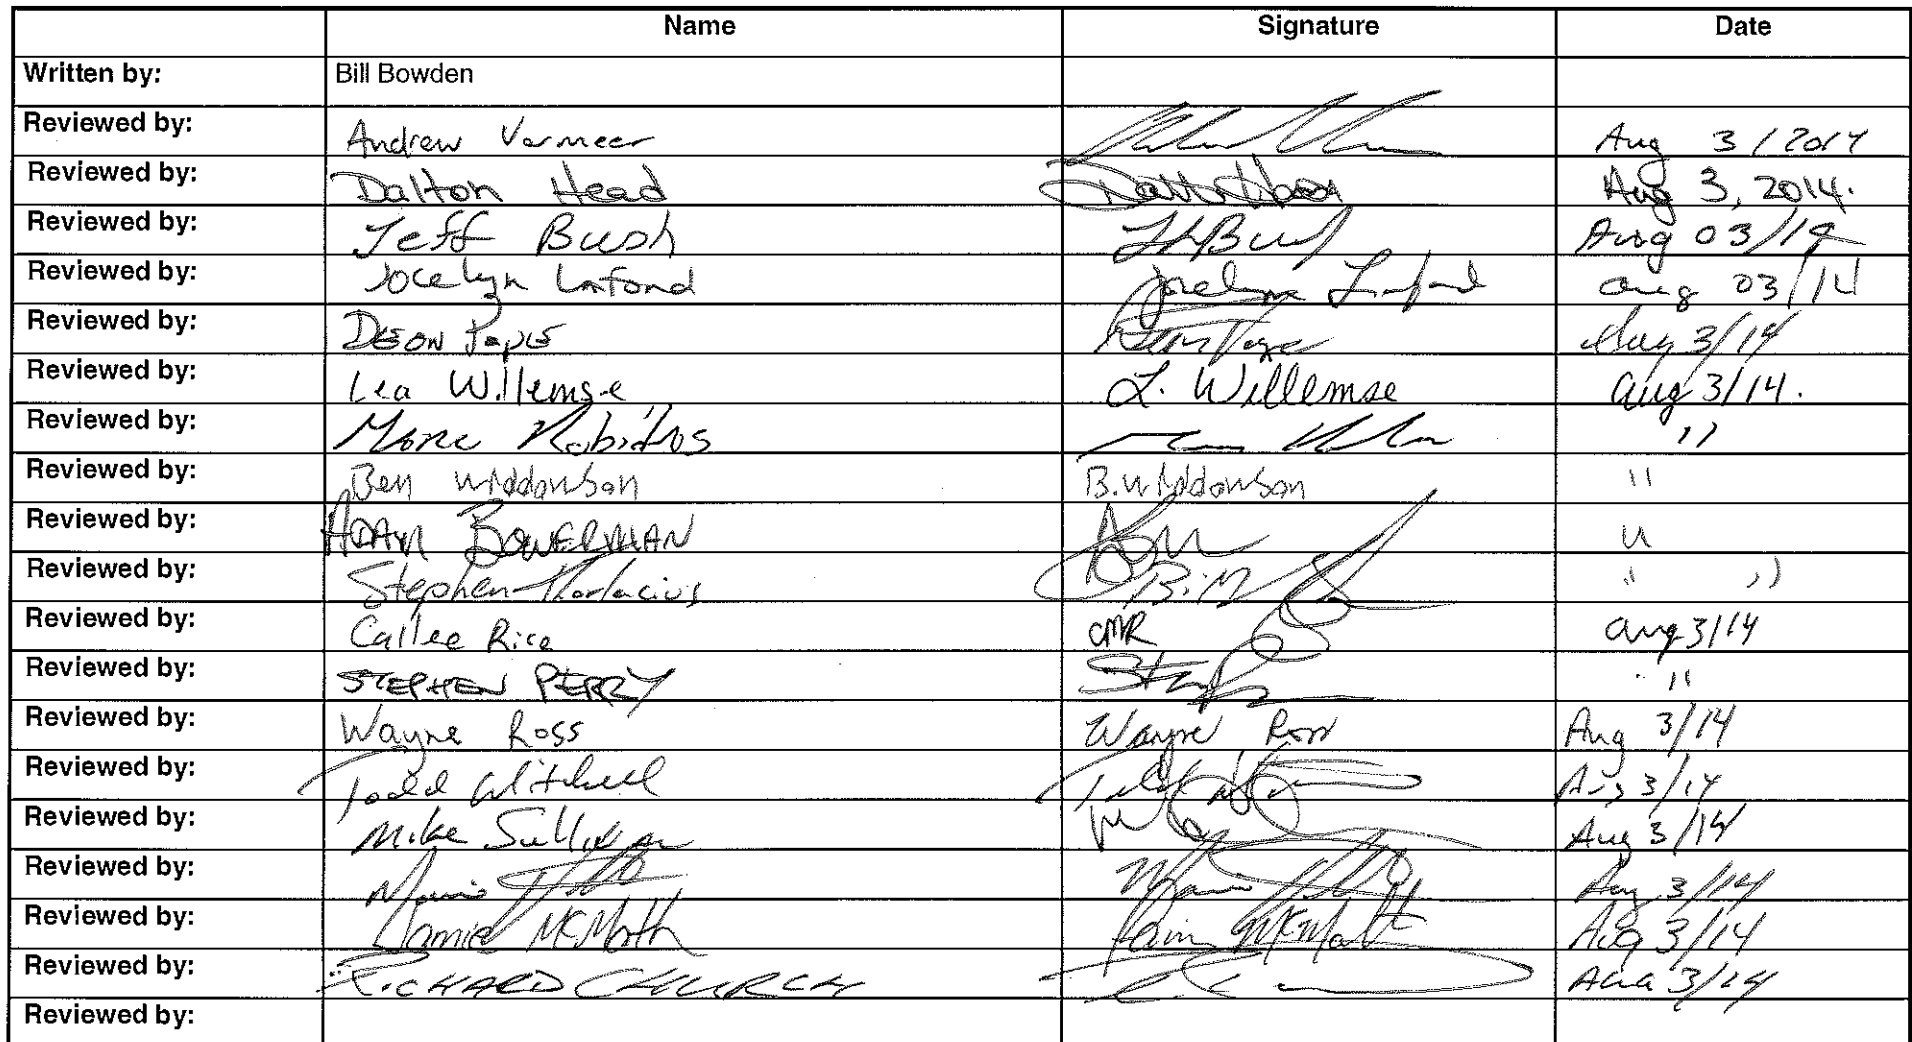 Name Signature Date
Written by: Bill Bowden
Reviewed by: Andrew Vermeer Aug 3 / 2014
Reviewed by: Dalton Head Dalton Head Aug 3, 2014.
Reviewed by: Jeff Bush Aug 03/14
Reviewed by: Jocelyn Lafond Jocelyn Lafond aug 03/14
Reviewed by: Deon Aug 3/14
Reviewed by: Lea Willemse L. Willemse aug 3/14.
Reviewed by: Marc "
Reviewed by: Ben Widdowson B. Widdowson "
Reviewed by: ADAM BOWERMAN "
Reviewed by: Stephen Thorlacius " "
Reviewed by: Callee Rice CMR aug 3/14
Reviewed by: STEPHEN PERRY "
Reviewed by: Wayne Ross Wayne Ross Aug 3/14
Reviewed by: Todd Mitchell Aug 3/14
Reviewed by: Mike Sullivan Aug 3/14
Reviewed by: Aug 3/14
Reviewed by: Jamie McMath Aug 3/14
Reviewed by: RICHARD CHURCH Aug 3/14
Reviewed by: